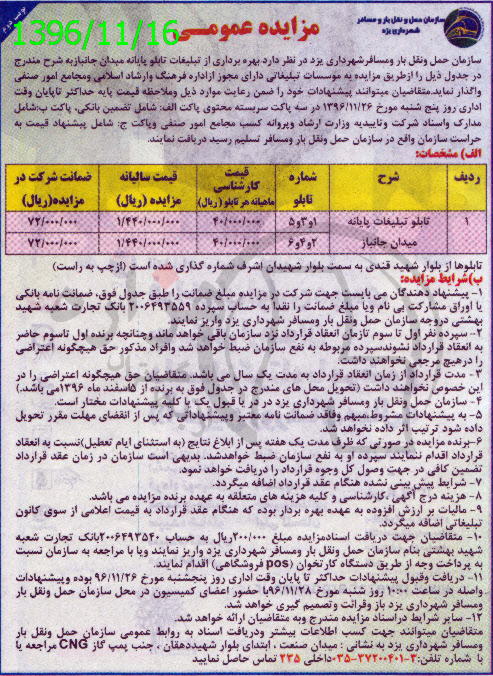 نوبت دوم
1396/11/16
مزایده عمومی
سازمان حمل و نقل بار و مسافر
شهرداری یزد
سازمان حمل ونقل بار ومسافرشهرداری یزد در نظر دارد بهره برداری از تبلیغات تابلو پایانه میدان جانبازبه شرح مندرج
در جدول ذیل را ازطریق مزایده به موسسات تبلیغاتی دارای مجوز ازاداره فرهنگ وارشاد اسلامی ومجامع امور صنفی
واگذار نماید.متقاضیان میتوانند پیشنهادات خود را ضمن رعایت موارد ذیل وملاحظه قیمت پایه حداکثر تاپایان وقت
اداری روز پنج شنبه مورخ ۱۳۹۶/۱۱/۲۶ در سه پاکت سربسته محتوی پاکت الف: شامل تضمین بانکی، پاکت ب:شامل
مدارک واسناد شرکت وتاییدیه وزارت ارشاد وپروانه کسب مجامع امور صنفی وپاکت ج: شامل پیشنهاد قیمت به
حراست سازمان واقع در سازمان حمل ونقل بار ومسافر تسلیم رسید دریافت نمایند.
الف) مشخصات:
ردیف شرح شماره تابلو قیمت کارشناسی ماهیانه هر تابلو (ریال) قیمت سالیانه مزایده (ریال) ضمانت شرکت در مزایده(ریال)
۱ تابلو تبلیغات پایانه ۱و۳و۵ ۴۰/۰۰۰/۰۰۰ ۱/۴۴۰/۰۰۰/۰۰۰ ۷۲/۰۰۰/۰۰۰
میدان جانباز ۲و۴و۶ ۴۰/۰۰۰/۰۰۰ ۱/۴۴۰/۰۰۰/۰۰۰ ۷۲/۰۰۰/۰۰۰
تابلوها از بلوار شهید قندی به سمت بلوار شهیدان اشرف شماره گذاری شده است (ازچپ به راست)
ب)شرایط مزایده:
۱- پیشنهاد دهندگان می بایست جهت شرکت در مزایده مبلغ ضمانت را طبق جدول فوق، ضمانت نامه بانکی
یا اوراق مشارکت بی نام ویا مبلغ ضمانت را نقدا به حساب سپرده ۲۰۰۶۴۹۳۵۵۹ بانک تجارت شعبه شهید
بهشتی دروجه سازمان حمل ونقل بار ومسافر شهرداری یزد واریز نمایند.
۲- سپرده نفر اول تا سوم تازمان انعقاد قرارداد نزد سازمان باقی خواهد ماند وچنانچه برنده اول تاسوم حاضر
به انعقاد قرارداد نشوندسپرده مربوطه به نفع سازمان ضبط خواهد شد وافراد مذکور حق هیچگونه اعتراضی
را درهیچ مرجعی نخواهند داشت.
۳- مدت قرارداد از زمان انعقاد قرارداد به مدت یک سال می باشد. متقاضیان حق هیچگونه اعتراضی را در
این خصوص نخواهند داشت (تحویل محل های مندرج در جدول فوق به برنده از ۵اسفند ماه ۱۳۹۶می باشد.)
۴- سازمان حمل ونقل بار ومسافر شهرداری یزد در رد یا قبول یک یا کلیه پیشنهادات مختار است.
۵- به پیشنهادات مشروط،مبهم وفاقد ضمانت نامه معتبر وپیشنهاداتی که پس از انقضای مهلت مقرر تحویل
داده شود ترتیب اثر داده نخواهد شد.
۶-برنده مزایده در صورتی که ظرف مدت یک هفته پس از ابلاغ نتایج (به استثنای ایام تعطیل)نسبت به انعقاد
قرارداد اقدام ننمایند سپرده او به نفع سازمان ضبط خواهدشد. بدیهی است سازمان در زمان عقد قرارداد
تضمین کافی در جهت وصول کل وجوه قرارداد را دریافت خواهد نمود.
۷- شرایط پیش بینی نشده هنگام عقد قرارداد اضافه میگردد.
۸- هزینه درج آگهی ،کارشناسی و کلیه هزینه های متعلقه به عهده برنده مزایده می باشد.
۹- مالیات بر ارزش افزوده به عهده بهره بردار بوده که هنگام عقد قرارداد به قیمت اعلامی از سوی کانون
تبلیغاتی اضافه میگردد.
۱۰- متقاضیان جهت دریافت اسنادمزایده مبلغ ۲۰۰/۰۰۰ریال به حساب ۲۰۰۶۴۹۳۵۴۰بانک تجارت شعبه
شهید بهشتی بنام سازمان حمل ونقل بار ومسافر شهرداری یزد واریز نمایند ویا با مراجعه به سازمان نسبت
به پرداخت وجه از طریق دستگاه کارتخوان (pos فروشگاهی) اقدام نمایند.
۱۱- دریافت وقبول پیشنهادات حداکثر تا پایان وقت اداری روز پنجشنبه مورخ ۹۶/۱۱/۲۶ بوده وپیشنهادات
واصله در ساعت ۱۰:۰۰ روز شنبه مورخ ۹۶/۱۱/۲۸با حضور اعضای کمیسیون در محل سازمان حمل ونقل بار
ومسافر شهرداری یزد باز وقرائت وتصمیم گیری خواهد شد.
۱۲- سایر شرایط دراسناد مزایده مندرج وبه متقاضیان ارائه خواهد شد.
متقاضیان میتوانند جهت کسب اطلاعات بیشتر ودریافت اسناد به روابط عمومی سازمان حمل ونقل بار
ومسافر شهرداری یزد به نشانی : میدان صنعت ، ابتدای بلوار شهیددهقان ، جنب پمپ گاز CNG مراجعه یا
با شماره تلفن:۳-۰۳۵-۳۷۲۰۰۴۰۱داخلی ۲۳۵ تماس حاصل نمایید